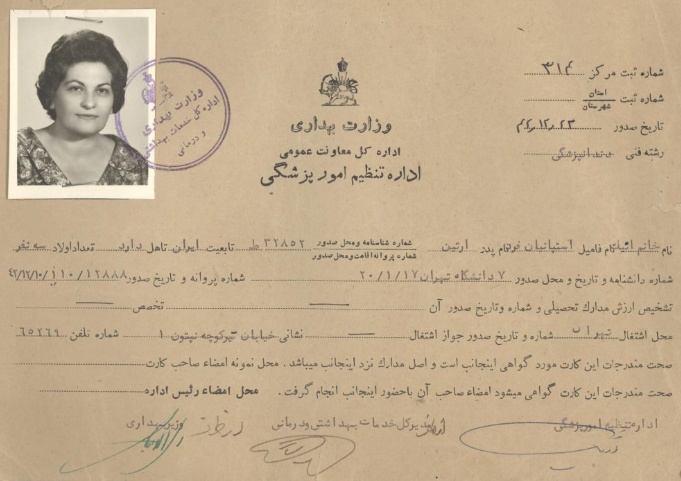 شماره ثبت مرکز ۳۱۴
شماره ثبت استان شهرستان
تاریخ صدور ۴۲٫۱۲٫۲۳
رشته فنی دندانپزشگی
وزارت بهداری
اداره کل خدمات بهداشتی
و درمانی
وزارت بهداری
اداره کل معاونت عمومی
اداره تنظیم امور پزشگی
نام خانم نام فامیل استپانیان نام پدر آرتین شماره شناسنامه و محل صدور شماره پروانه اقامت و محل صدور ۳۲۸۵۲ ط تابعیت ایران تاهل دارد تعداد اولاد سه نفر
شماره دانشنامه و تاریخ و محل صدور ۷ دانشگاه تهران ۲۰/۱/۱۷ شماره پروانه و تاریخ صدور ۱۲۸۸۸
تشخیص ارزش مدارک تحصیلی و شماره وتاریخ صدور آن تخصص
محل اشتغال تهران شماره و تاریخ صدور جواز اشتغال نشانی خیابان تیر کوچه نپتون ۱ شماره تلفن ۶۵۲۶۹
صحت مندرجات این کارت مورد گواهی اینجانب است و اصل مدارک نزد اینجانب میباشد . محل نمونه امضاء صاحب کارت
صحت مندرجات این کارت گواهی میشود امضاء صاحب آن باحضور اینجانب انجام گرفت . محل امضاء رئیس اداره
اداره تنظیم امور پزشگی مدیر کل خدمات بهداشتی و درمانی وزیر بهداری